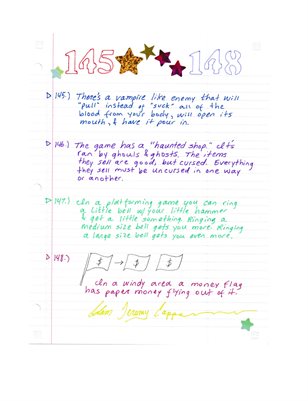 145 148
145.) There's a vampire like enemy that will
"pull" instead of "suck" all of the
blood from your body, will open its
mouth, & have it pour in.
146.) The game has a "haunted shop." It's
ran by ghouls & ghosts. The items
they sell are good, but cursed. Everything
they sell must be uncursed in one way
or another.
147.) In a platforming game you can ring
a little bell w/ your little hammer
& get a little something. Ringing a
medium size bell gets you more. Ringing
a large size bell gets you even more.
148.) $ → $ $
In a windy area a money flag
has paper money flying out of it.
Jeremy